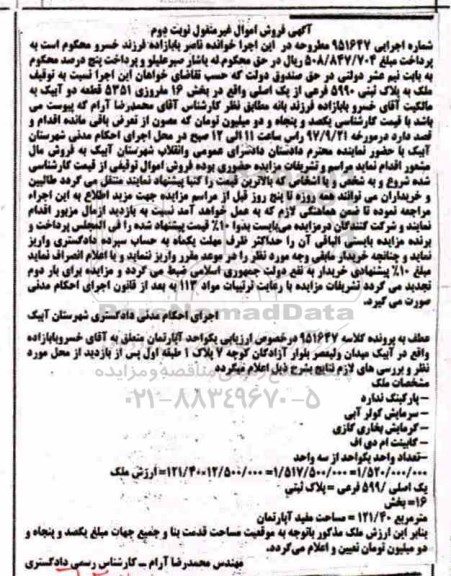 آگهی فروش اموال غیرمنقول نوبت دوم
شماره اجرایی ۹۵۱۶۴۷ مطروحه در این اجرا خوانده ناصر بابازاده فرزند خسرو محکوم است به
پرداخت مبلغ ۵۰۸/۸۴۷/۷۰۴ ریال در حق محکوم له یاشار صبرعلیلو و پرداخت پنج درصد محکوم
به بابت نیم عشر دولتی در حق صندوق دولت که حسب تقاضای خواهان این اجرا نسبت به توقیف
ملک به پلاک ثبتی ۵۹۹۰ فرعی از یک اصلی واقع در بخش ۱۶ مفروزی ۵۳۵۱ قطعه دو آبیک به
مالکیت آقای خسرو بابازاده فرزند بانه مطابق نظر کارشناس آقای محمدرضا آرام که پیوست می
باشد با قیمت کارشناسی یکصد و پنجاه و دو میلیون تومان که مصون از تعرض باقی مانده اقدام و
قصد دارد درمورخه ۹۷/۹/۲۱ راس ساعت ۱۱ الی ۱۲ صبح در محل اجرای احکام مدنی شهرستان
آبیک با حضور نماینده محترم دادستان دادسرای عمومی وانقلاب شهرستان آبیک به فروش مال
مشعور اقدام نماید مراسم و تشریفات مزایده حضوری بوده فروش اموال توقیفی از قیمت کارشناسی
شده شروع و به شخص و یا اشخاص که بالاترین قیمت را کتبا پیشنهاد نمایند منتقل می گردد طالبین
و خریداران می توانند همه روزه تا پنج روز قبل از مراسم مزایده جهت مزید اطلاع به این اجراء
مراجعه نموده تا ضمن هماهنگی لازم که به عمل خواهد آمد نسبت به بازدید ازمال مزبور اقدام
نمایند و شرکت کنندگان درمزایده می‌بایست بدوا ۱۰٪ قیمت پیشنهاد شده را فی المجلس پرداخت و
برنده مزایده بایستی الباقی آن را حداکثر ظرف مهلت یکماه به حساب سپرده دادگستری واریز
نماید و چنانچه خریدار مابقی وجه مورد نظر را در موعد مقرر واریز ننماید و یا اعلام انصراف نماید
مبلغ ۱۰٪ پیشنهادی خریدار به نفع دولت جمهوری اسلامی ضبط می گردد و مزایده برای بار دوم
تجدید می گردد تشریفات مزایده با رعایت ترتیبات مواد ۱۱۳ به بعد از قانون اجرای احکام مدنی
صورت می گیرد.
اجرای احکام مدنی دادگستری شهرستان آبیک
عطف به پرونده کلاسه ۹۵۱۶۴۷ درخصوص ارزیابی یکواحد آپارتمان متعلق به آقای خسروبابازاده
واقع در آبیک میدان ولیعصر بلوار آزادگان کوچه ۷ پلاک ۱ طبقه اول پس از بازدید از محل مورد
نظر و بررسی های لازم نتایج بشرح ذیل اعلام میگردد
مشخصات ملک
– پارکینگ ندارد
– سرمایش کولر آبی
– گرمایش بخاری گازی
– کابینت ام دی اف
–تعداد واحد یکواحد از سه واحد
۱/۵۲۰/۰۰۰/۰۰۰=۱/۵۱۷/۵۰۰/۰۰۰=۱۲۱/۴۰×۱۲/۵۰۰/۰۰۰= ارزش ملک
یک اصلی /۵۹۹ فرعی = پلاک ثبتی
۱۶= بخش
مترمربع ۱۲۱/۴۰ = مساحت مفید آپارتمان
بنابر این ارزش ملک مذکور باتوجه به موقعیت مساحت قدمت بنا و جمیع جهات مبلغ یکصد و پنجاه و
دو میلیون تومان تعیین و اعلام می‌گردد.
مهندس محمدرضا آرام – کارشناس رسمی دادگستری